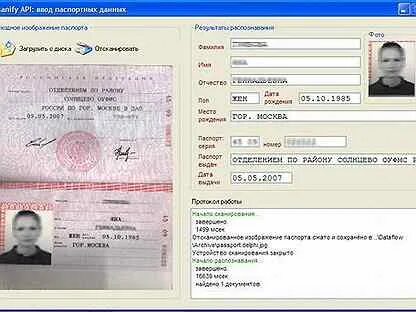 canify API: ввод паспортных данных
ходное изображение паспорта
Загрузить с диска
Отсканировать
ОТДЕЛЕНИЕМ ПО РАЙОНУ
СОЛНЦЕВО ОУФМС
РОССИИ ПО ГОР. МОСКВЕ В ЗАО
09.05.2007
ЯНА
ГЕННАДЬЕВНА
ЖЕН 05.10.1985
ГОР. МОСКВА
Результаты распознавания
Фото
Фамилия
Имя
Отчество
ГЕННАДЬЕВНА
Пол
ЖЕН
Дата рождения
05.10.1985
Место рождения
ГОР. МОСКВА
Паспорт: серия
номер
Паспорт выдан
ОТДЕЛЕНИЕМ ПО РАЙОНУ СОЛНЦЕВО ОУФМС Р
Дата выдачи
05.05.2007
Протокол работы
Начало сканирования...
завершено.
1499 мсек
Отсканированное изображение паспорта сжато и сохранено в ..\Dataflow
\Archive\passport.delphi.jpg
Устройство сканирования закрыто
Начало распознавания...
завершено.
16639 мсек
найдено 1 документов.